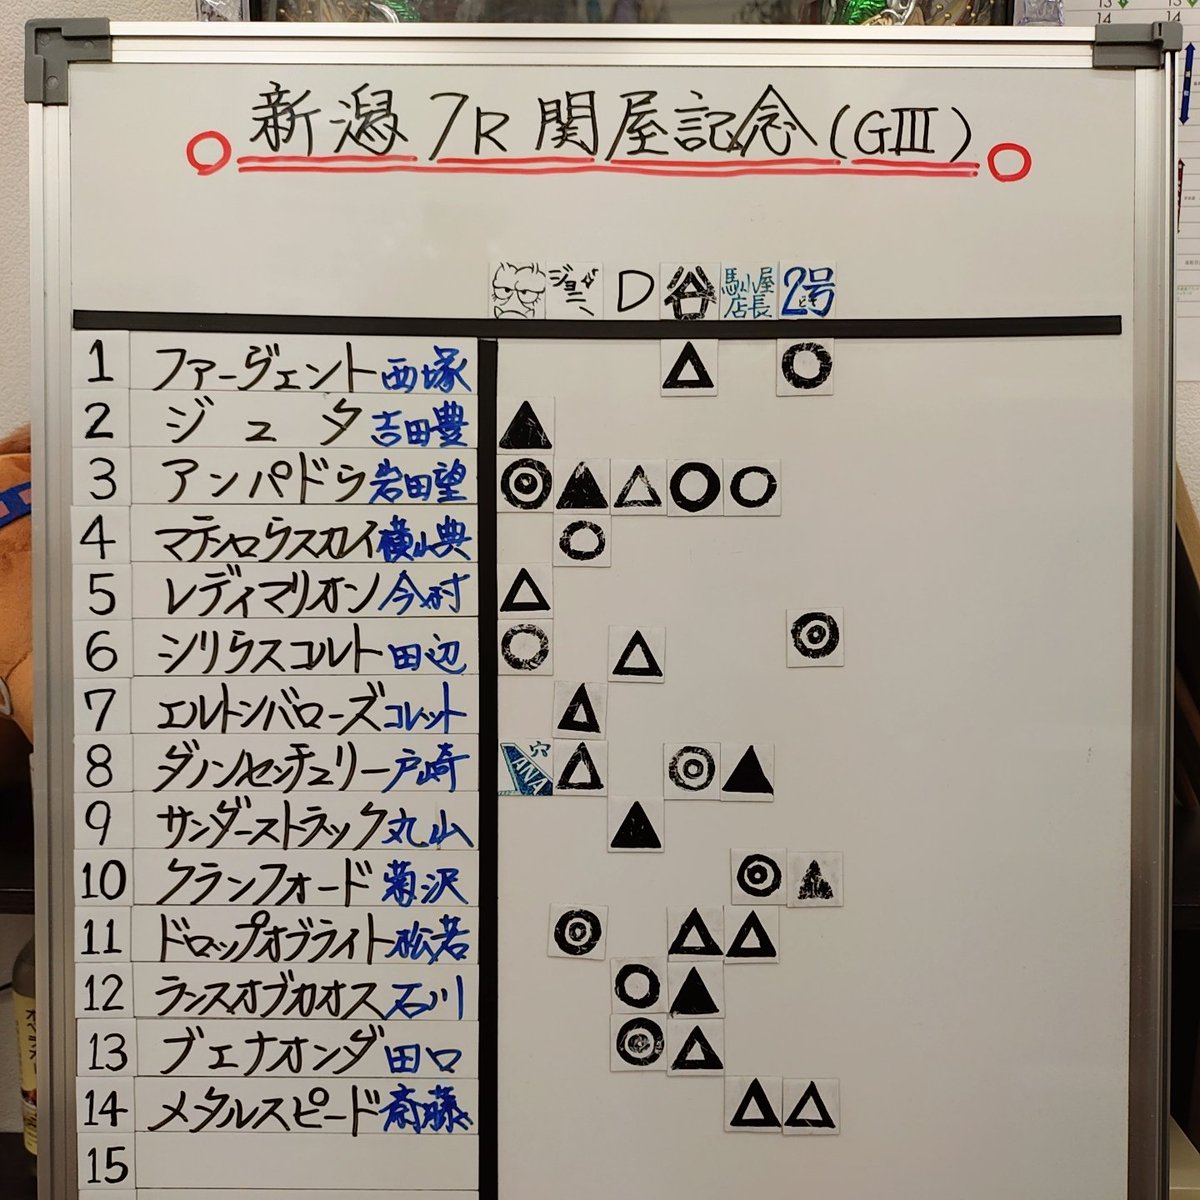 新潟 7R 関屋記念(GIII)
ジョニー D 谷 馬小屋店長 2号
1 ファーヴェント 西塚 △ ○
2 ジュタ 吉田豊 ▲
3 アンパドゥ 岩田望 ◎ ▲ △ ○ ○
4 マテンロウスカイ 横山典 ○
5 レディマリオン 今村 △
6 シリウスコルト 田辺 ○ △ ◎
7 エルトンバローズ コレット △
8 ダノンセンチュリー 戸崎 穴 ANA △ ◎ ▲
9 サンダーストラック 丸山 ▲
10 クランフォード 菊沢 ◎ ▲
11 ドロップオブライト 松若 ◎ △ △
12 ランスオブカオス 石川 ○ ▲
13 ブエナオンダ 田口 ◎ △
14 メタルスピード 斎藤 △ △
15